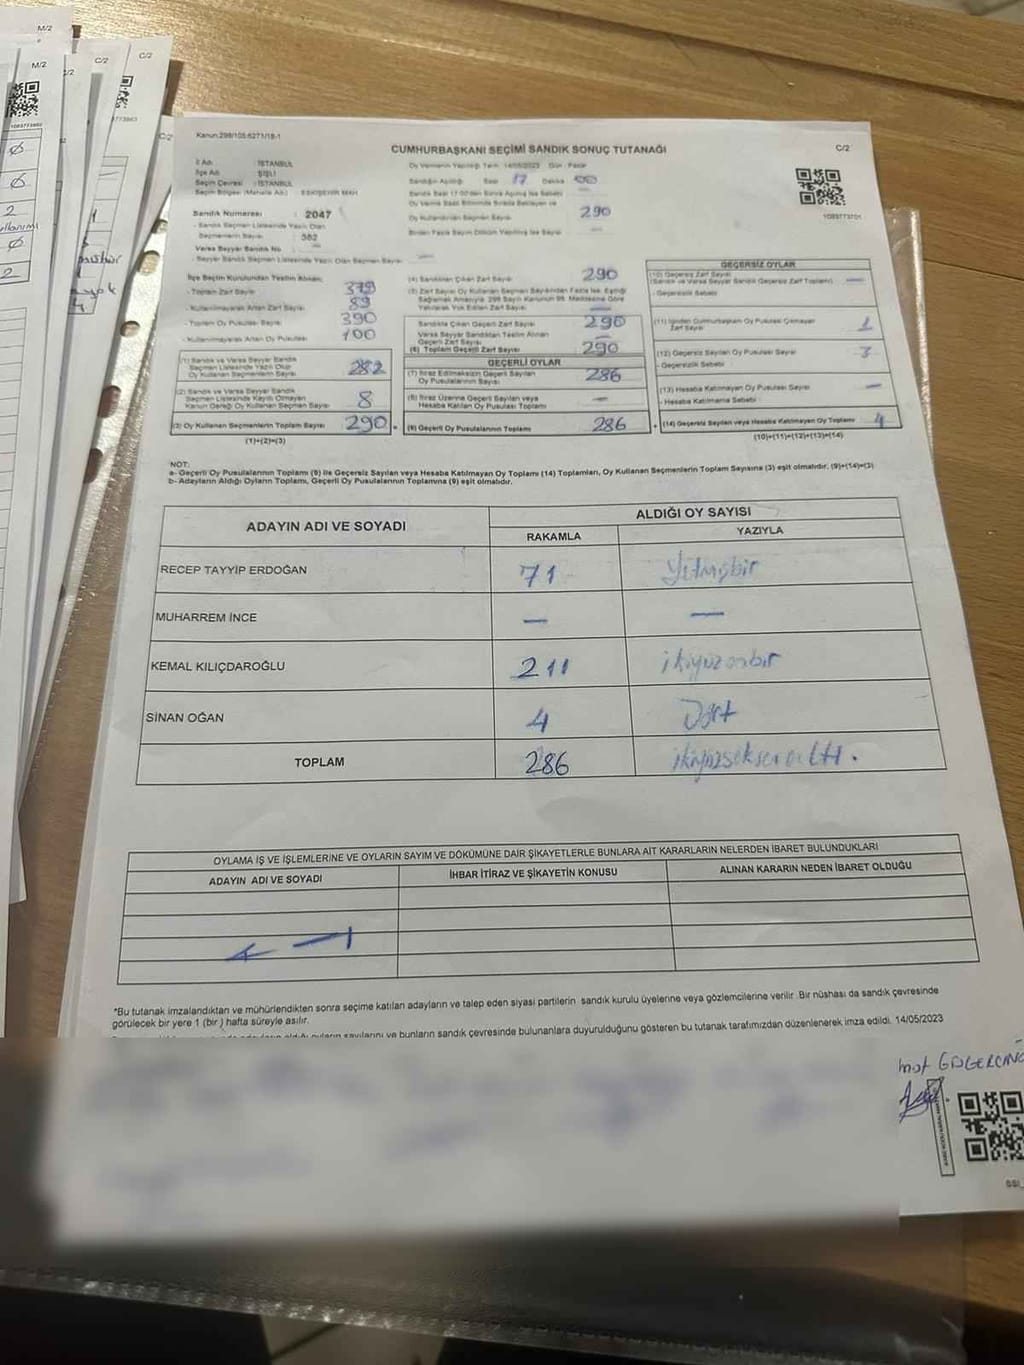 M/2
M/2
C/2
C/2
C/2
1089773862
Kanun:298/105.6271/18-1
CUMHURBAŞKANI SEÇİMİ SANDIK SONUÇ TUTANAĞI
C/2
İl Adı : İSTANBUL
İlçe Adı : ŞİŞLİ
Seçim Çevresi : İSTANBUL
Seçim Bölgesi (Mahalle Adı) : ESKİŞEHİR MAH.
Oy Vermenin Yapıldığı Tarih: 14/05/2023 Gün: Pazar
Sandığın Açıldığı Saat 17 Dakika 00
Oy Kullandırılan Seçmen Sayısı 290
1089773701
Sandık Numarası : 2047
- Sandık Seçmen Listesinde Yazılı Olan
Seçmenlerin Sayısı : 382
Varsa Seyyar Sandık No —
- Seyyar Sandık Seçmen Listesinde Yazılı Olan Seçmen Sayısı: —
İlçe Seçim Kurulundan Teslim Alınan;
- Toplam Zarf Sayısı 379
- Kullanılmayarak Artan Zarf Sayısı 89
- Toplam Oy Pusulası Sayısı 390
- Kullanılmayarak Artan Oy Pusulası 100
(1) Sandık ve Varsa Seyyar Sandık
Seçmen Listesinde Yazılı Olup
Oy Kullanan Seçmenlerin Sayısı 282
(2) Sandık ve Varsa Seyyar Sandık
Seçmen Listesinde Kayıtlı Olmayan
Kanun Gereği Oy Kullanan Seçmen Sayısı 8
(3) Oy Kullanan Seçmenlerin Toplam Sayısı 290
(1)+(2)=(3)
(4) Sandıktan Çıkan Zarf Sayısı 290
(5) Zarf Sayısı Oy Kullanan Seçmen Sayısından Fazla ise, Eşitliği
Sağlamak Amacıyla, 298 Sayılı Kanunun 98. Maddesine Göre
Yakılarak Yok Edilen Zarf Sayısı —
Sandıkta Çıkan Geçerli Zarf Sayısı 290
Varsa Seyyar Sandıktan Teslim Alınan
Geçerli Zarf Sayısı —
(6) Toplam Geçerli Zarf Sayısı 290
GEÇERLİ OYLAR
(7) İtiraz Edilmeksizin Geçerli Sayılan
Oy Pusulalarının Sayısı 286
(8) İtiraz Üzerine Geçerli Sayılan veya
Hesaba Katılan Oy Pusulası Toplamı —
(9) Geçerli Oy Pusulalarının Toplamı 286
GEÇERSİZ OYLAR
(10) Geçersiz Zarf Sayısı
(Sandık ve Varsa Seyyar Sandık Geçersiz Zarf Toplamı) —
- Geçersizlik Sebebi
(11) İçinden Cumhurbaşkanı Oy Pusulası Çıkmayan
Zarf Sayısı 1
(12) Geçersiz Sayılan Oy Pusulası Sayısı 3
- Geçersizlik Sebebi:
(13) Hesaba Katılmayan Oy Pusulası Sayısı —
- Hesaba Katılmama Sebebi
(14) Geçersiz Sayılan veya Hesaba Katılmayan Oy Toplamı 4
(10)+(11)+(12)+(13)=(14)
NOT:
a- Geçerli Oy Pusulalarının Toplamı (9) ile Geçersiz Sayılan veya Hesaba Katılmayan Oy Toplamı (14) Toplamları, Oy Kullanan Seçmenlerin Toplam Sayısına (3) eşit olmalıdır. (9)+(14)=(3)
b- Adayların Aldığı Oyların Toplamı, Geçerli Oy Pusulalarının Toplamına (9) eşit olmalıdır.
ADAYIN ADI VE SOYADI
ALDIĞI OY SAYISI
RAKAMLA YAZIYLA
RECEP TAYYİP ERDOĞAN 71 Yetmişbir
MUHARREM İNCE — —
KEMAL KILIÇDAROĞLU 211 ikiyüzonbir
SİNAN OĞAN 4 Dört
TOPLAM 286 ikiyüzseksenaltı.
OYLAMA İŞ VE İŞLEMLERİNE VE OYLARIN SAYIM VE DÖKÜMÜNE DAİR ŞİKAYETLERLE BUNLARA AİT KARARLARIN NELERDEN İBARET BULUNDUKLARI
ADAYIN ADI VE SOYADI İHBAR İTİRAZ VE ŞİKAYETİN KONUSU ALINAN KARARIN NEDEN İBARET OLDUĞU
*Bu tutanak imzalandıktan ve mühürlendikten sonra seçime katılan adayların ve talep eden siyasi partilerin sandık kurulu üyelerine veya gözlemcilerine verilir. Bir nüshası da sandık çevresinde
görülecek bir yere 1 (bir ) hafta süreyle asılır.
oyların sayılarını ve bunların sandık çevresinde bulunanlara duyurulduğunu gösteren bu tutanak tarafımızdan düzenlenerek imza edildi. 14/05/2023